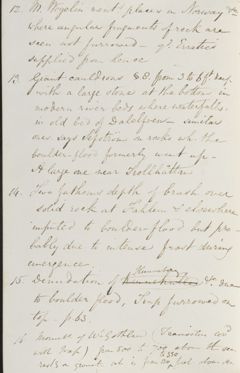 12. M. Bögelin ment. places in Norway &c
where angular fragments of rock are
seen not furrowed — qy Erratics
supplied from hence
13. Giant cauldrons &c. from 3 to 6 ft deep
with a large stone at the bottom in
modern river beds where waterfalls
in old bed of Dalelfven similar
ones says in rocks wh. the
boulder flood formerly went up.
A large one near Trollhätten
14. Two fathoms depth of crush over
solid rock at Fahlun & elsewhere
imputed to boulder-flood but pro-
bably due to intense frost during
emergence.
15. Denudation of &c due
to boulder flood, Trap furrowed on
top p 63
16. of W. Gothland (Transition cov
with trap) from 800 to above the sea
rests on granite